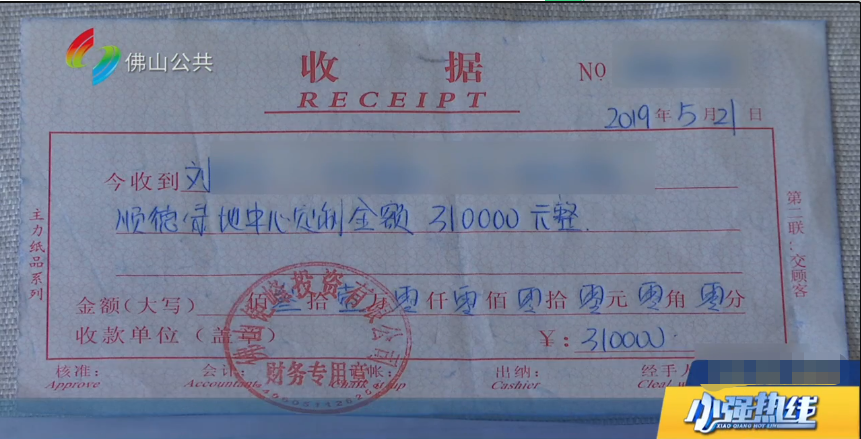 佛山公共
收 据
NO
RECEIPT
2019年5月21日
今收到 刘
顺德绿地中心定的金额 310000元整.
金额(大写) 佰叁拾壹万零仟零佰零拾零元零角零分
收款单位(盖
¥:310000
投资有限公司
财务专用章
核准: 会计: 出纳: 经手人
Approve Accountant Cashier
主力纸品系列
第二联:交顾客
小强热线
XIAO QIANG HOT LINE